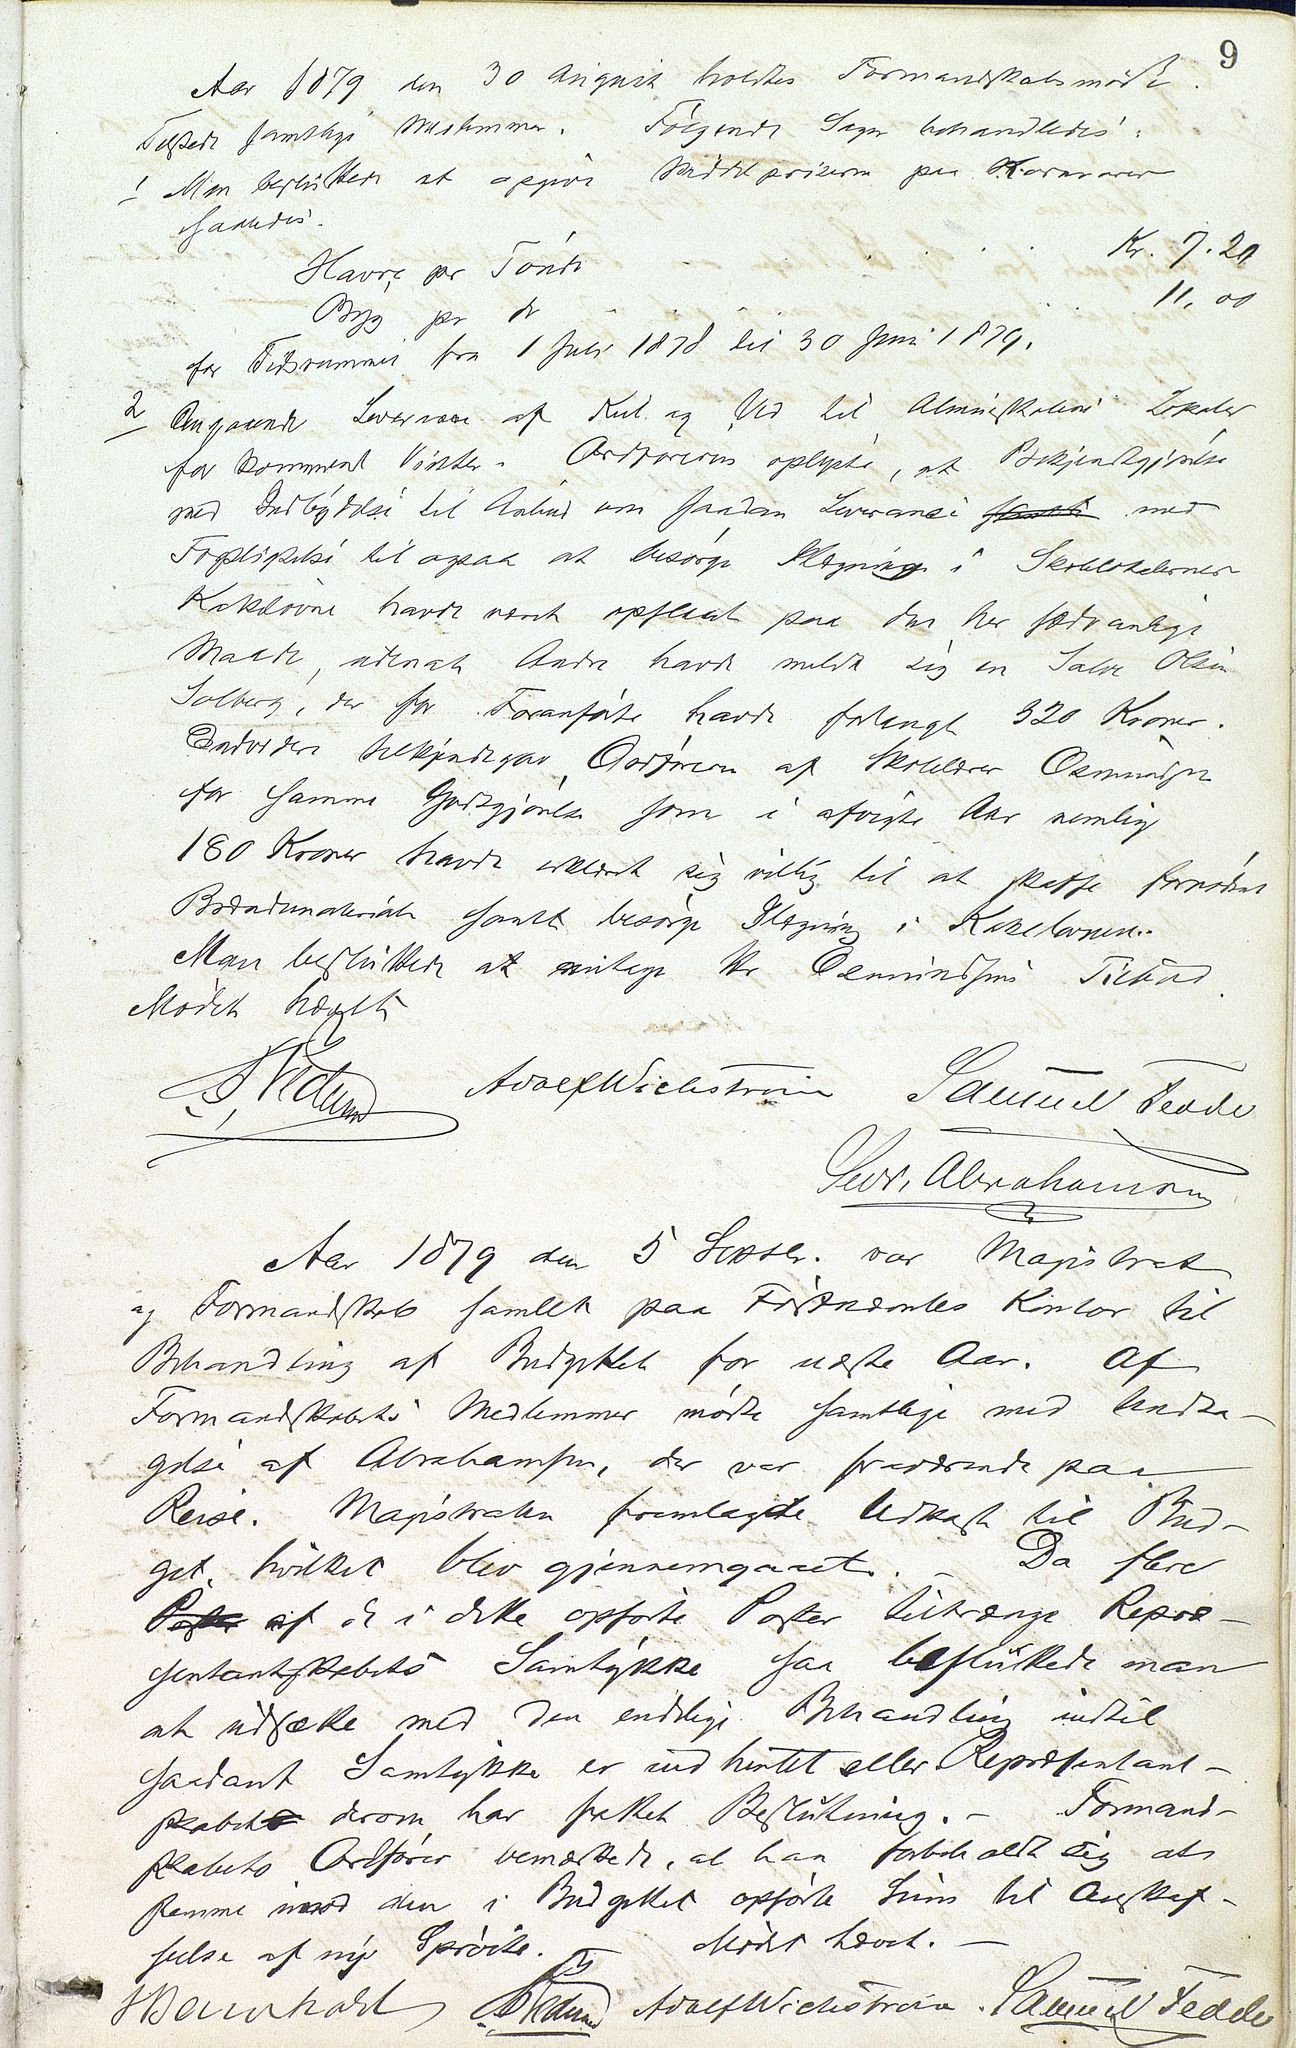 9
Aar 1879 den 30 August holdtes Formandskabsmøde.
Tilstede samtlige Medlemmer. Følgende Sager behandledes:
1 Man besluttede at opgive Middelpriserne paa Kornvarer
saaledes.
Havre pr Tønde Kr. 7.20
Byg pr do 11,00
for Tidsrummet fra 1 Juli 1878 til 30 Juni 1879.
2 Angaaende Leverance af Kul og Ved til Almueskolens Lokaler
for kommende Vinter. Ordføreren oplyste, at Bekjendtgjørelse
med Indbydelse til Anbud om saadan Leverance med
Forpligtelse til ogsaa at besørge Ilægning i Skolelokalernes
Kakelovne havde været opslaaet paa den her sædvanlige
Maade, uden at Andre havde meldt sig en Salve Olsen
Solberg, der for Foranførte havde forlangt 320 Kroner.
Endvidere tilkjendegav Ordføreren at Skolelærer Osmundsen
for samme Godtgjørelse som i afvigte Aar nemlig
180 Kroner havde erklæret sig villig til at skaffe fornødent
Brændemateriale samt besørge Ilægning i Kakelovnen.
Man besluttede at antage Hr Osmundsens Tilbud.
Mødet hævet
Adolf Wichstrøm Samuel Fedde
Sevr. Abrahamsen
Aar 1879 den 5 Septbr. var Magistrat
og Formandskab samlet paa Førstnævntes Kontor til
Behandling af Budgettet for næste Aar. Af
Formandskabets Medlemmer mødte samtlige med Undta-
gelse af Abrahamsen, der var fraværende paa
Reise. Magistraten fremlagde Udkast til Bud-
get, hvilket blev gjennemgaaet. - Da flere
Poster af de i dette opførte Poster tiltrænge Repræ-
sentantskabets Samtykke saa besluttede man
at udsætte med den endelige Behandling indtil
saadant Samtykke er indhentet eller Repræsentant-
skabet derom har fattet Beslutning. - Formand-
skabets Ordfører bemærkede, at han forbeholdt sig at
stemme imod den i Budgettet opførte Sum til Anskaf-
felse af ny Sprøite. Mødet hævet. -
Adolf Wichstrøm. Samuel Fedde